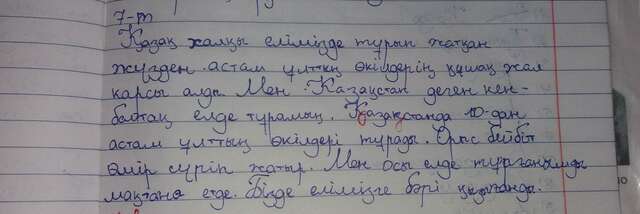 7-т
Қазақ халқы елімізде тұрып жатқан
жүзден астам ұлттың өкілдерін құшақ жая
қарсы алды Мен Казақстан деген кең-
байтақ елде тұрамың. Қазақстанда 10-дан
астам ұлттың өкілдері тұрады. бейбіт
өмір сүріп жатыр. Мен осы елде тұрғанымды
мақтана етде. Бізде елімізге бәрі қызығанда.